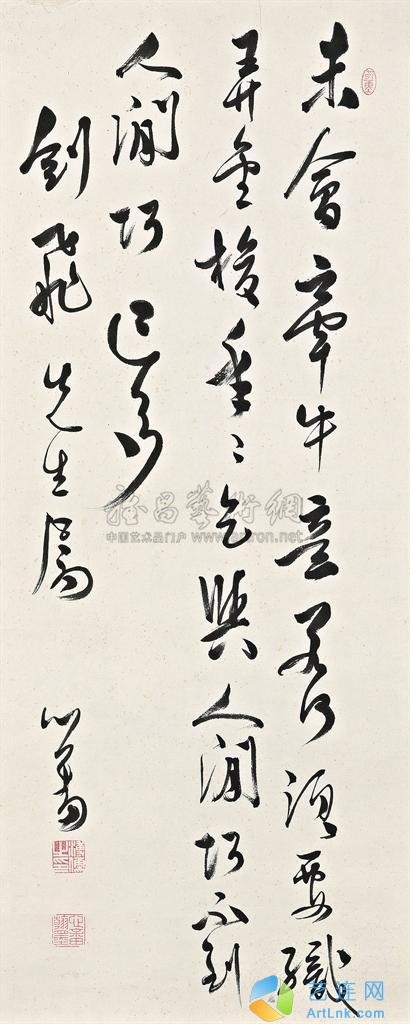 未會牽牛意若何須要織
弄金梭年〻乞與人間巧不到
人間巧已多
劍飛先生屬
心畬
雅昌藝術網
中国艺术品门户
艺连网
ArtLnk.com